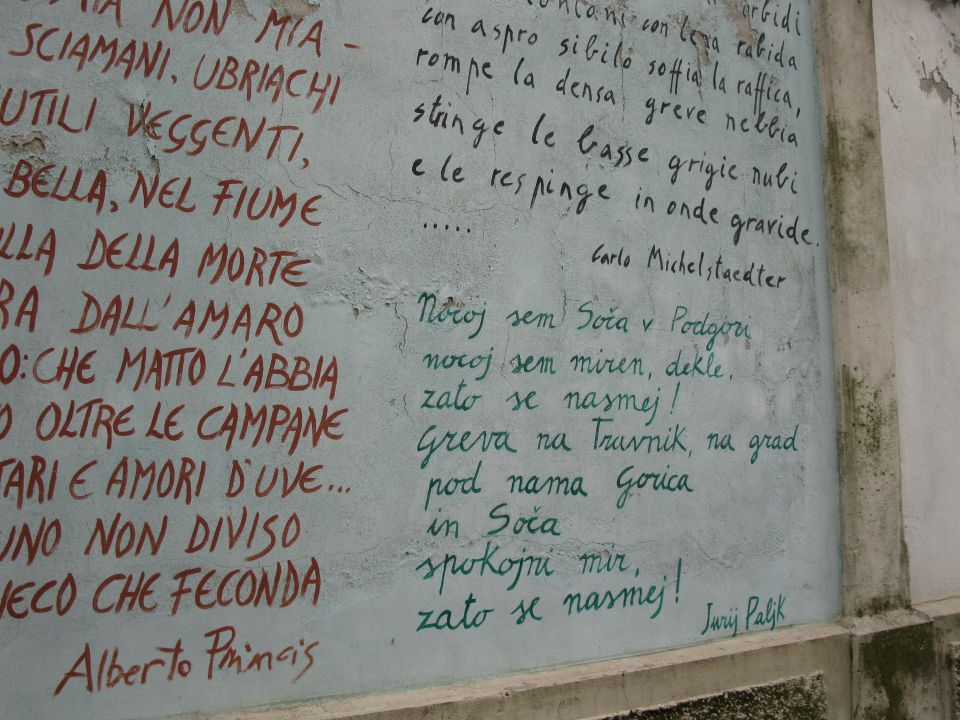 NON MIA -
SCIAMANI, UBRIACHI
VEGGENTI,
BELLA, NEL FIUME
DELLA MORTE
DALL'AMARO
O: CHE MATTO L'ABBIA
OLTRE LE CAMPANE
E AMORI D'UVE...
NON DIVISO
CHE FECONDA
Alberto Princis
con lena rabida
con aspro sibilo soffia la raffica,
rompe la densa greve nebbia
stringe le basse grigie nubi
e le respinge in onde gravide.
.....
Carlo Michelstaedter
Nocoj sem Soča v Podgori
nocoj sem miren, dekle,
zato se nasmej!
Greva na Travnik, na grad
pod nama Gorica
in Soča
spokojni mir,
zato se nasmej!
Jurij Paljk